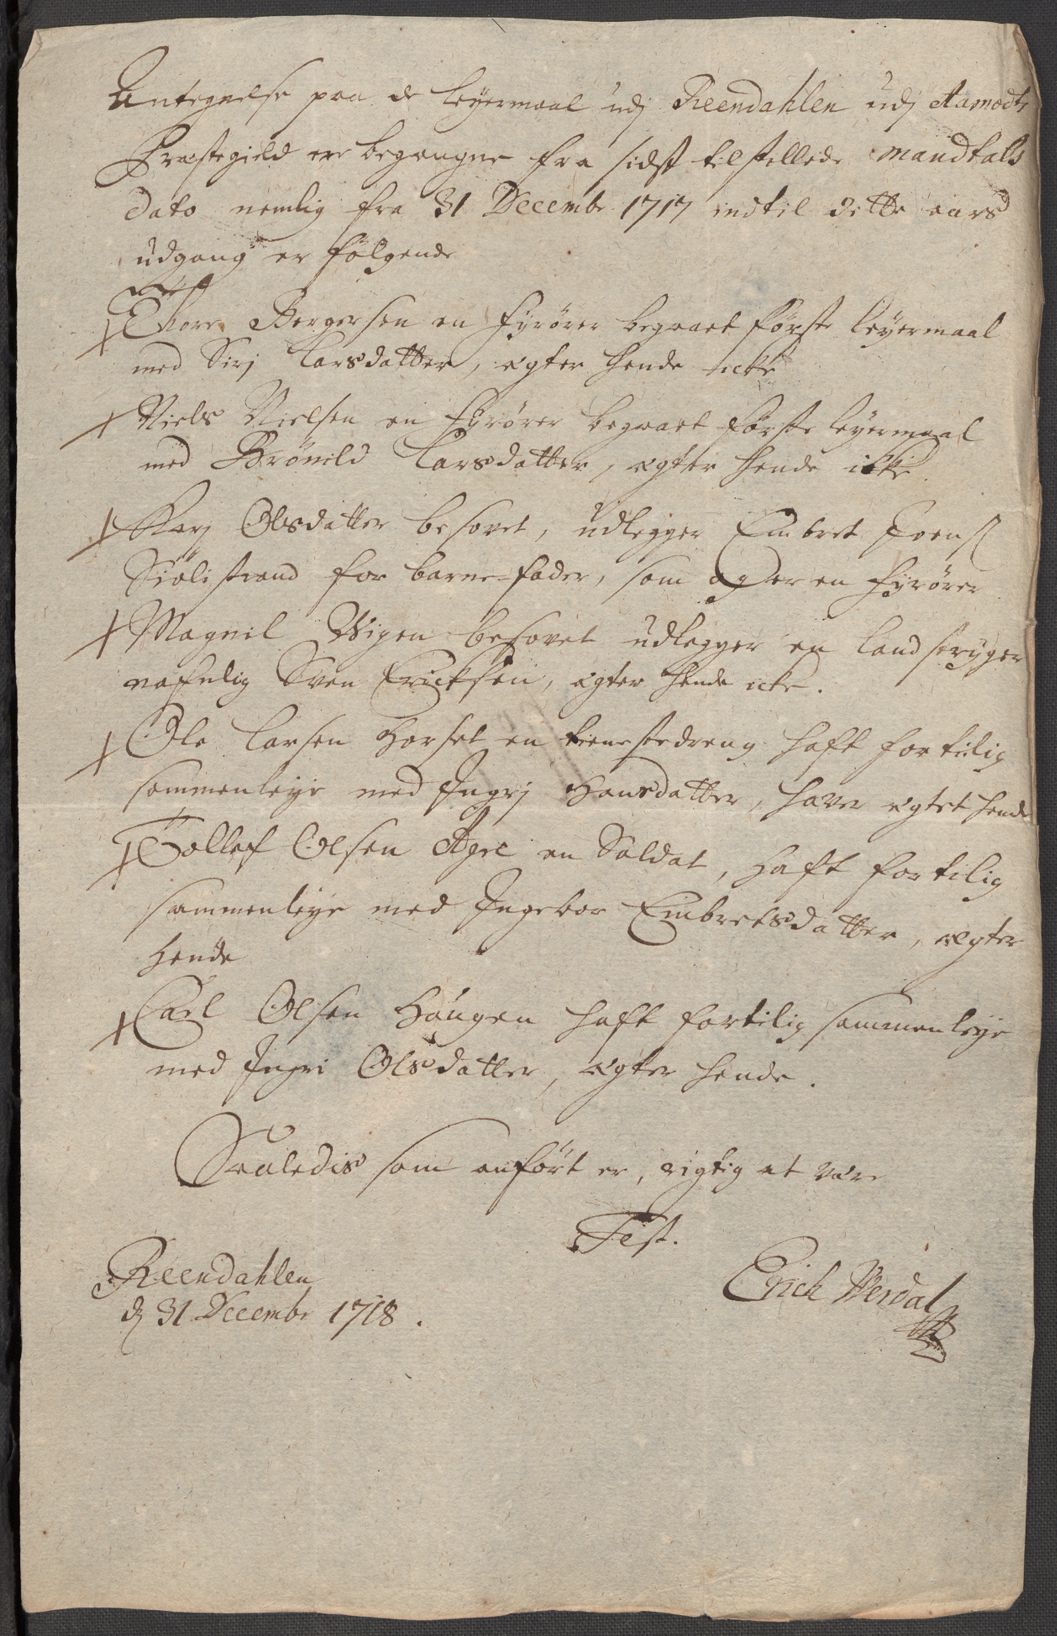 Antegnelse paa de leyermaal udj Reendahlen udj Aamodts
Præstegield ere begangne fra sidst tilstellede Mandtals
dato nemlig fra 31 Decembr 1717 indtil dette aars
udgang er følgende
Thore Bergersen en fyrører begaaet første leyermaal
med Sirj Larsdatter, ægter hende icke
Niels Nielsen en fyrører begaaet første leyermaal
med Brønild Larsdatter, ægter hende icke
Karj Olsdatter besovet, udlegger Embret Evens
Siølistrand for barne-fader, som og er en fyrører
Magnil Wigen besovet udlegger en landstryger
nafnlig Sven Ericksen, ægter hende icke.
Ole Larsen Horset en tienestedreng haft fortilig
sammenleye med Ingrj Hansdatter, haver ægtet hende
Tollef Olsen Agre en Soldat, haft fortilig
sammenleye med Ingebor Embretsdatter, ægter
hende
Carl Olsen Haugen haft fortilig sammenleye
med Ingri Olsdatter, ægter hende.
Saaledis som anført er, rigtig at være
Test.
Reendahlen
d 31 Decembr 1718.
Erich Werdal